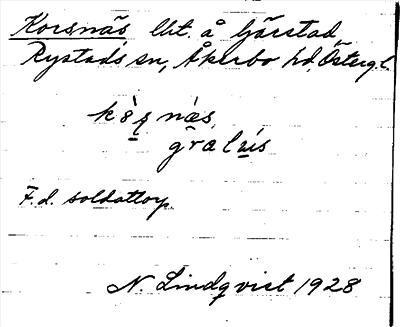 Korsnäs lht. å Gärstad
Rystads sn, Åkerbo hd, Östergl.
kòṣnäs
grälu̱s
F.d. soldattorp.
N. Lindqvist 1928